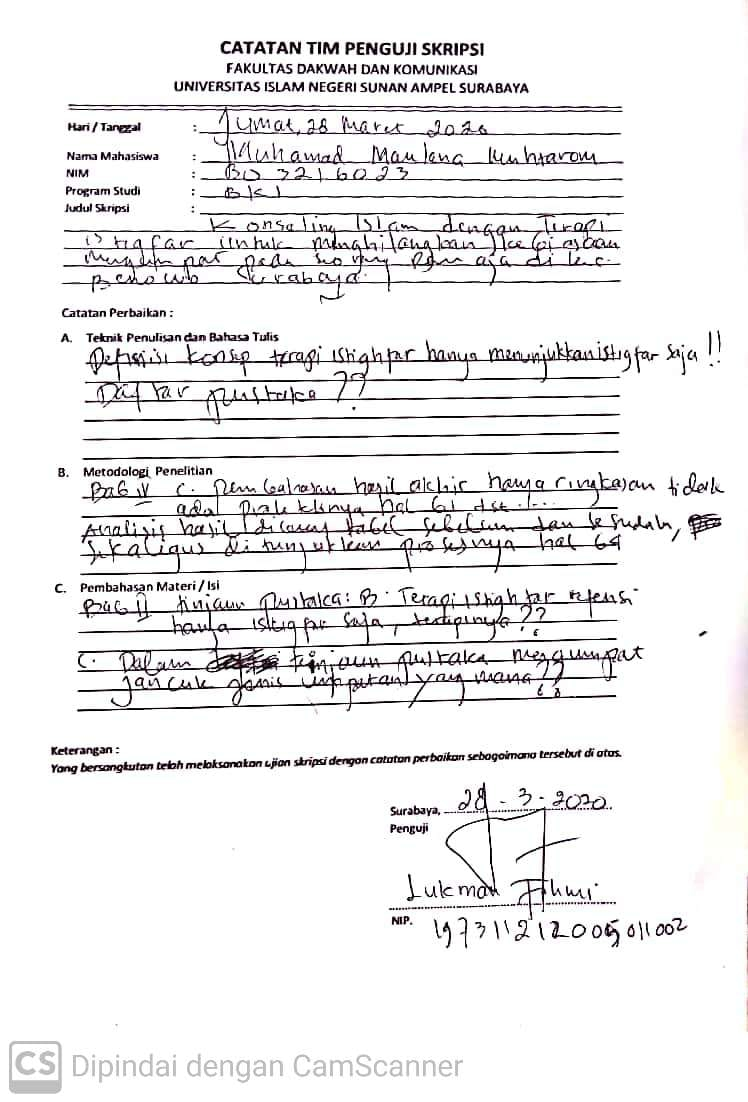 CATATAN TIM PENGUJI SKRIPSI
FAKULTAS DAKWAH DAN KOMUNIKASI
UNIVERSITAS ISLAM NEGERI SUNAN AMPEL SURABAYA
Hari / Tanggal : Jumat, 28 Maret 2020
Nama Mahasiswa : Muhamad Maulana
NIM : B03216023
Program Studi : BKI
Judul Skripsi :
Konseling Islam dengan Terapi
istigfar untuk menghilangkan kebiasaan
pada seorang Remaja di kec.
Benowo Surabaya.
Catatan Perbaikan :
A. Teknik Penulisan dan Bahasa Tulis
Definisi konsep terapi istighfar hanya menunjukkan istigfar saja !!
Daftar pustaka ??
B. Metodologi Penelitian
Bab IV C. Pembahasan hasil akhir hanya ringkasan tidak
ada hal 61 dst...
Analisis hasil tabel sebelum dan sesudah,
Sekaligus ditunjukkan prosesnya hal 69
C. Pembahasan Materi / Isi
Bab II tinjaun pustaka: B. Terapi istighfar
hanya istigfar saja, terapinya ??
C. Dalam tinjaun pustaka
jenis umpatan yang mana ??
Keterangan :
Yang bersangkutan telah melaksanakan ujian skripsi dengan catatan perbaikan sebagaimana tersebut di atas.
Surabaya, 28 - 3 - 2020.
Penguji
Lukman Fahmi
NIP. 197311212005011002
CS Dipindai dengan CamScanner